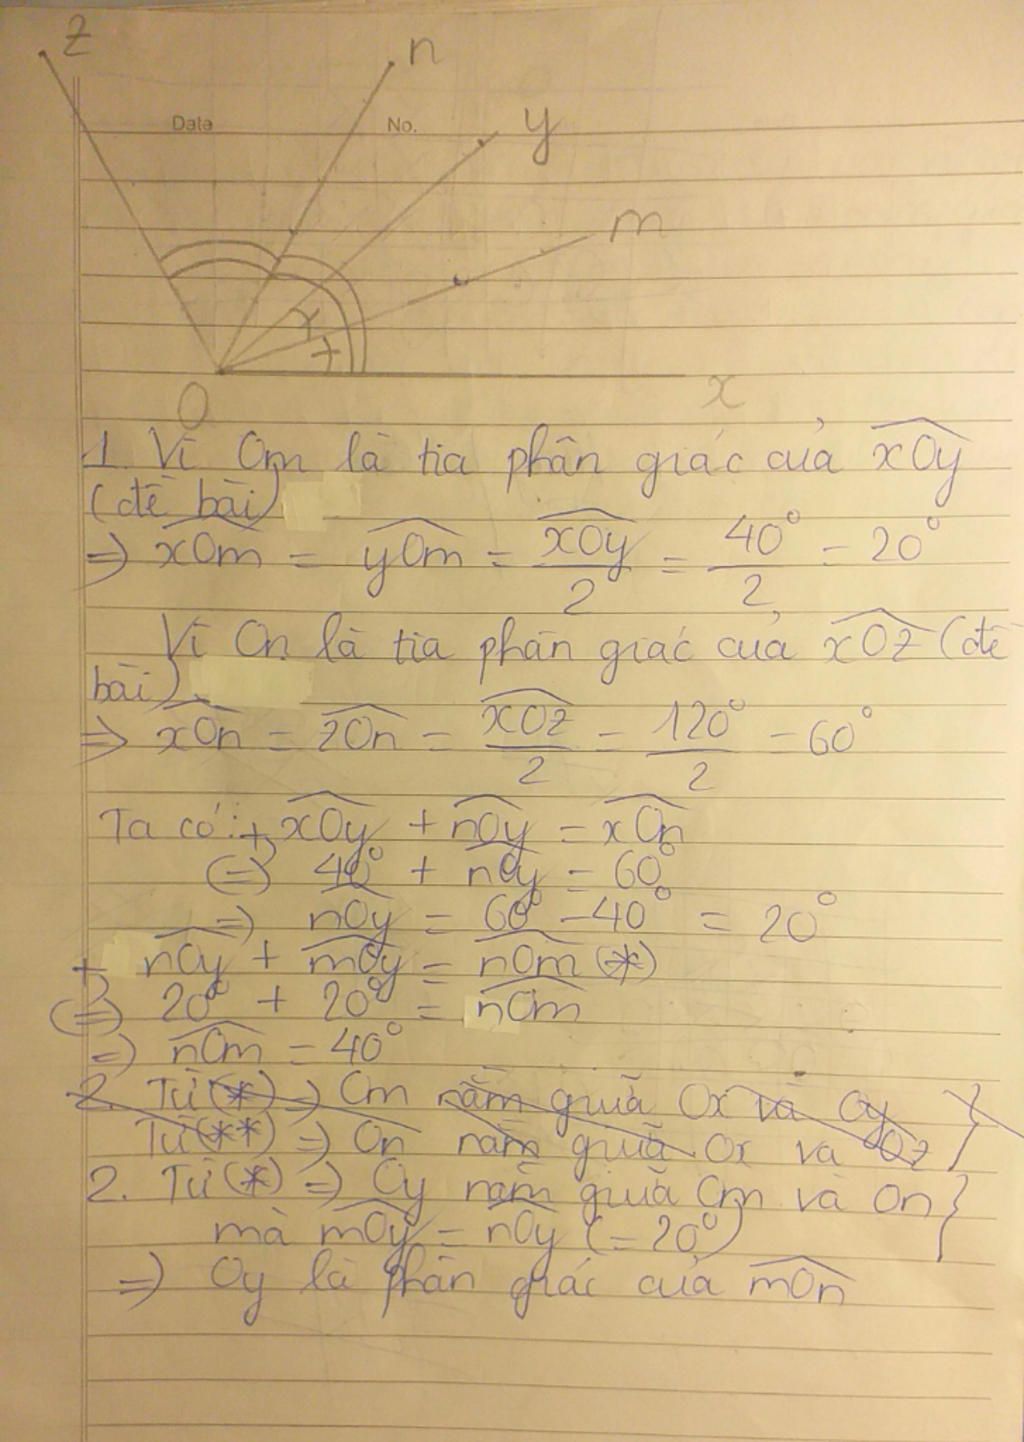 z
n
Date
No.
y
m
O
x
1. Vì Om là tia phân giác của xOy
(đề bài)
=> xOm = yOm = xOy/2 = 40°/2 = 20°
Vì On là tia phân giác của xOz (đề
bài)
=> xOn = zOn = xOz/2 = 120°/2 = 60°
Ta có: + xOy + nOy = xOn
(=) 40° + nOy = 60°
=) nOy = 60° - 40° = 20°
+ nOy + mOy = nOm (*)
(=) 20° + 20° = nOm
=) nOm = 40°
2. Từ (*) =) Om nằm giữa Ox và Oy }
Từ (**) =) On nằm giữa Ox và Oz }
2. Từ (*) =) Oy nằm giữa Om và On }
mà mOy = nOy (= 20°)
=) Oy là phân giác của mOn